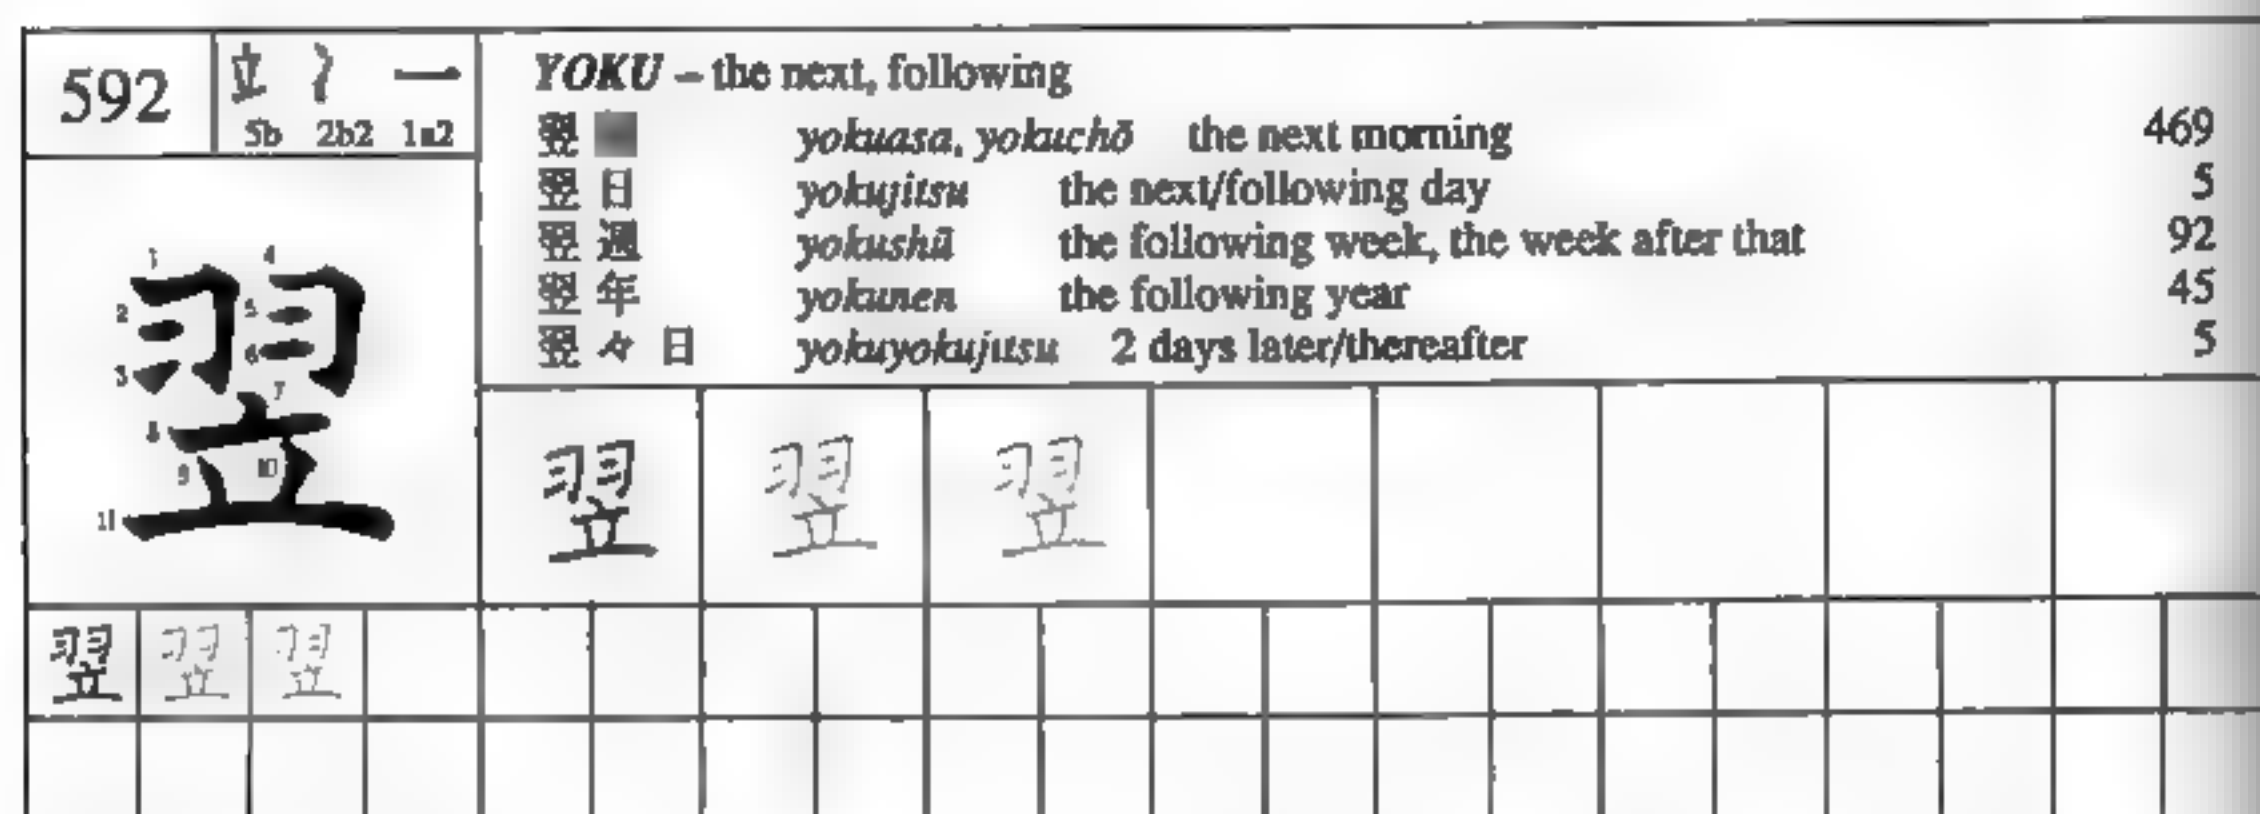 592
5b 2b2 1a2
YOKU – the next, following
翌 yokuasa, yokuchō the next morning 469
翌日 yokujitsu the next/following day 5
翌週 yokushū the following week, the week after that 92
翌年 yokunen the following year 45
翌々日 yokuyokujitsu 2 days later/thereafter 5
1 4
2 5
3 6
7
8
9 10
11
翌
翌 翌 翌
翌 翌 翌